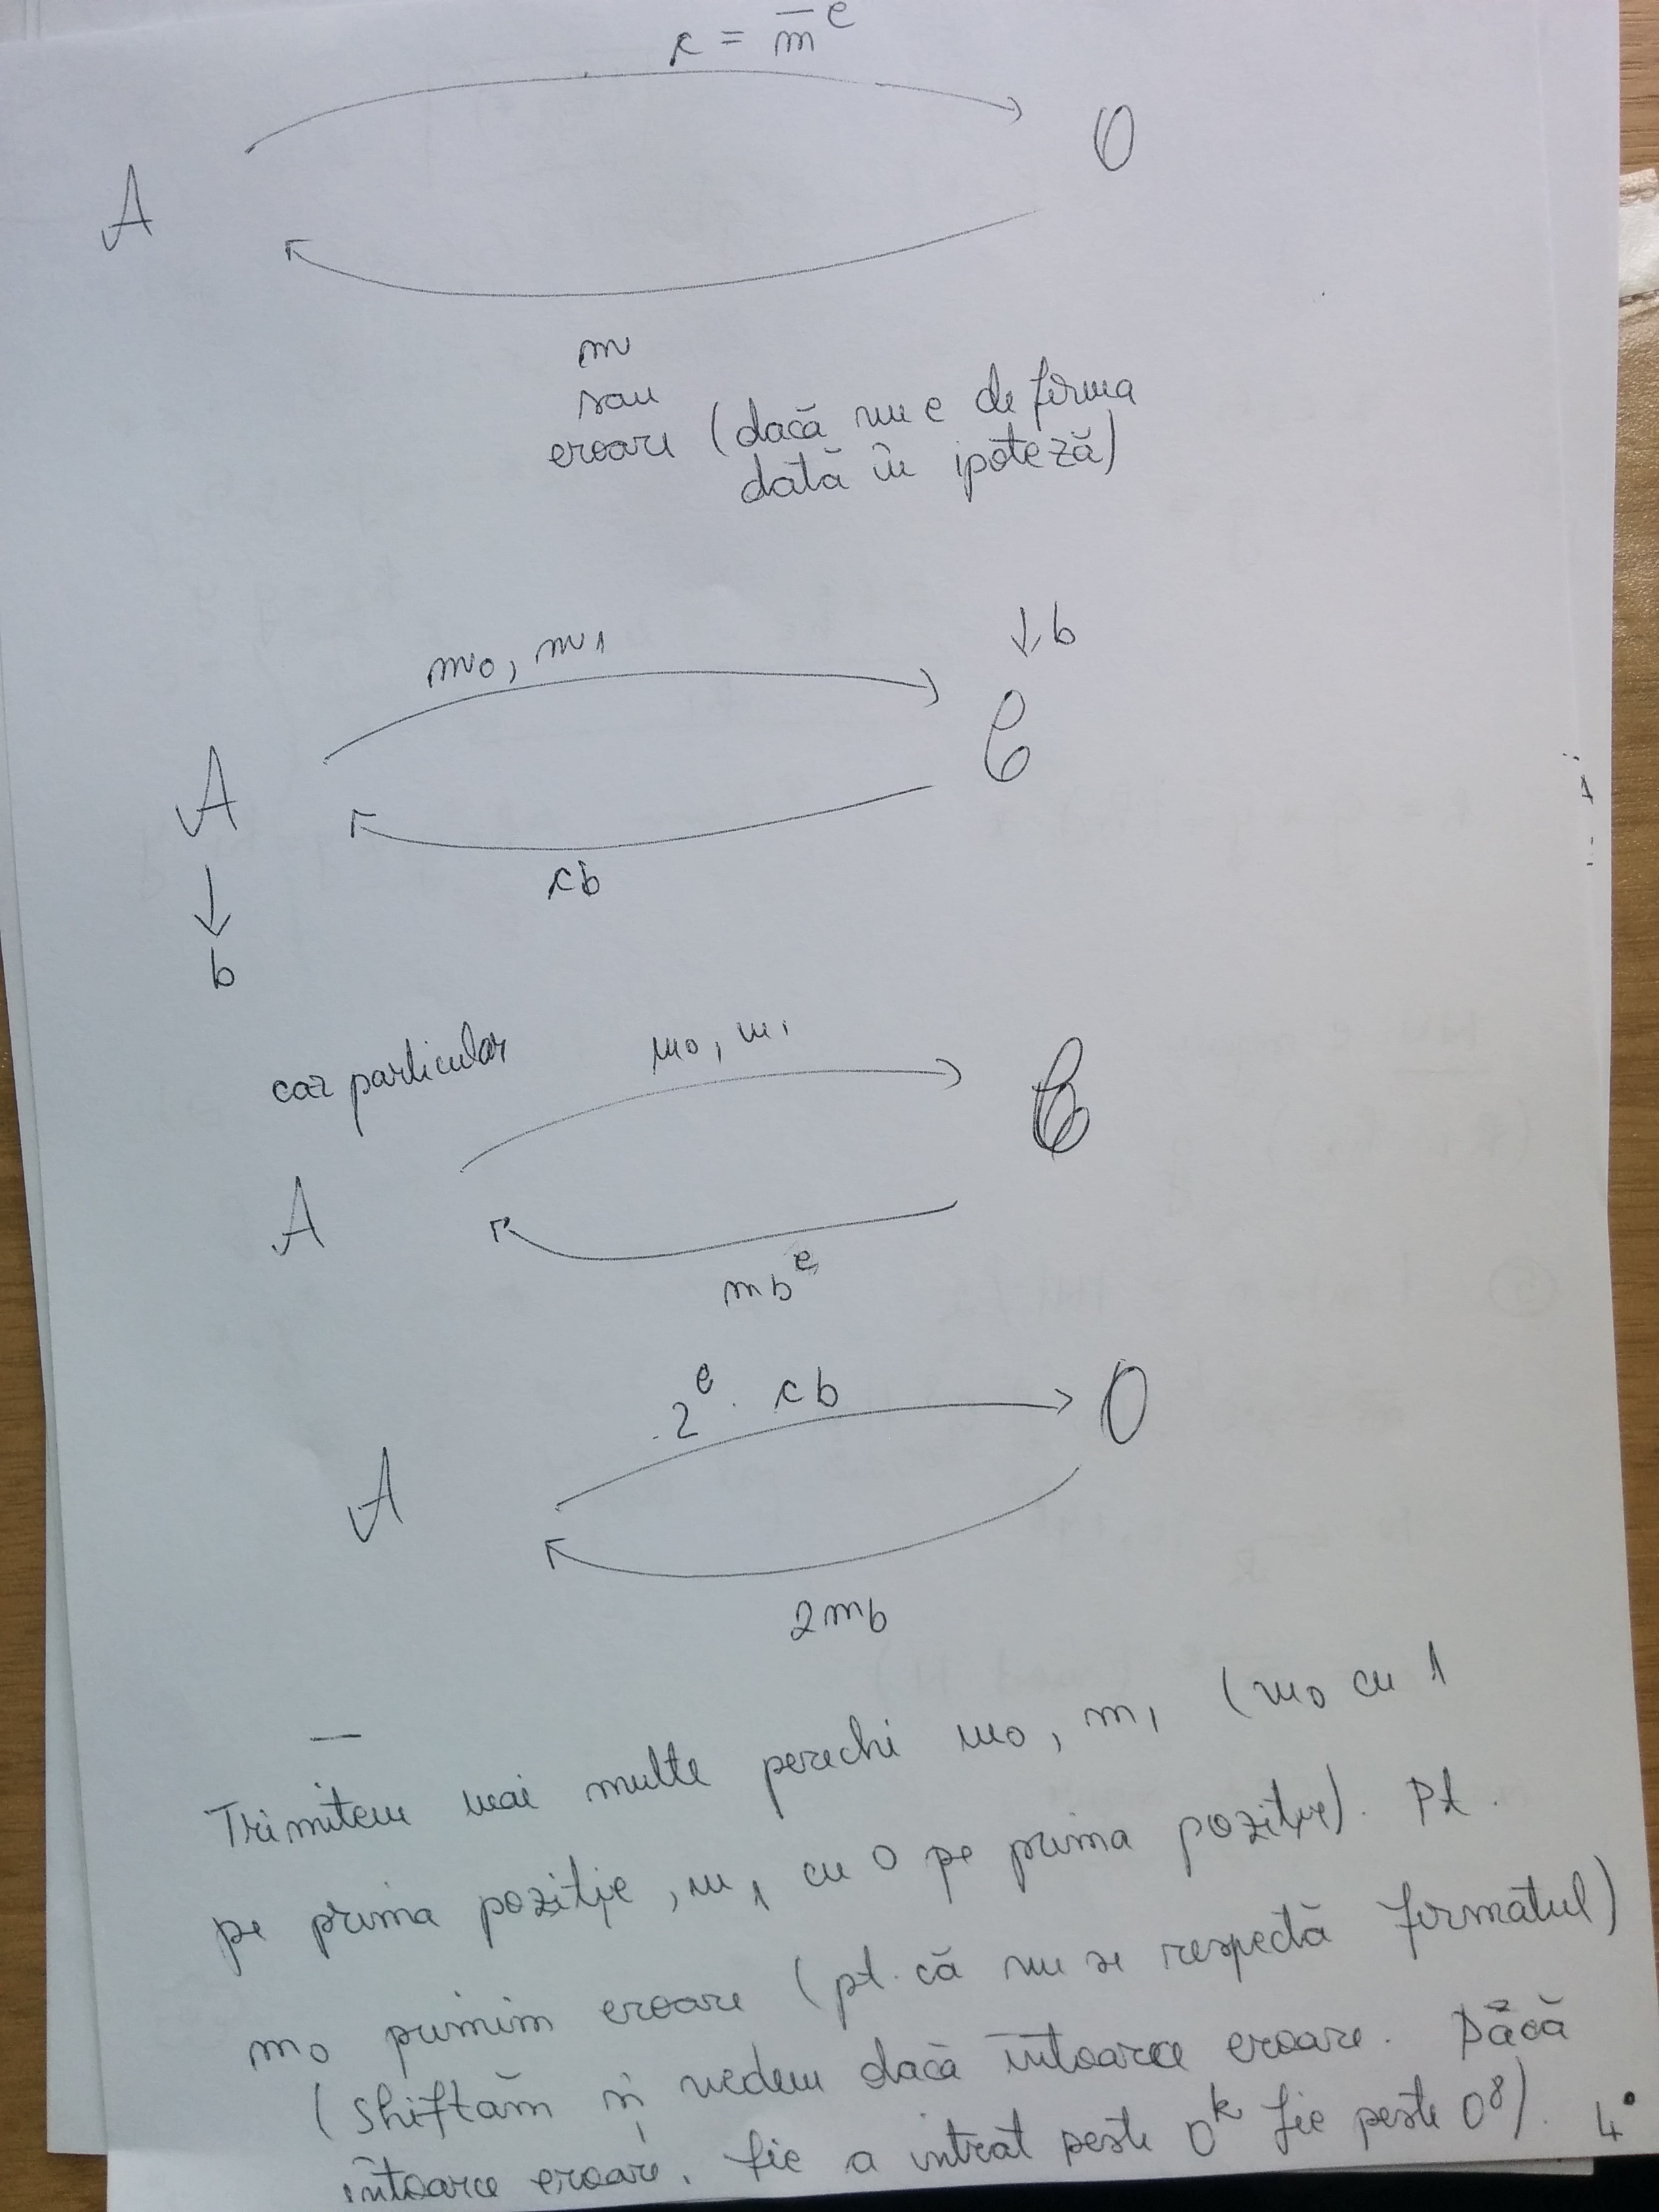 c = m̄^e
A
O
m
sau
eroare (dacă nu e de forma
dată în ipoteză)
↓ b
m0, m1
C
A
cb
↓
b
caz particular
m0, m1
C
A
mb^e
2^e · cb
O
A
2mb
—
Trimitem mai multe perechi m0, m1 (m0 cu 1
pe prima poziție, m1 cu 0 pe prima poziție). Pt.
m0 primim eroare (pt. că nu se respectă formatul)
(Shiftăm și vedem dacă întoarce eroare. Dacă
întoarce eroare, fie a intrat peste 0^k fie peste 0^8).
4°